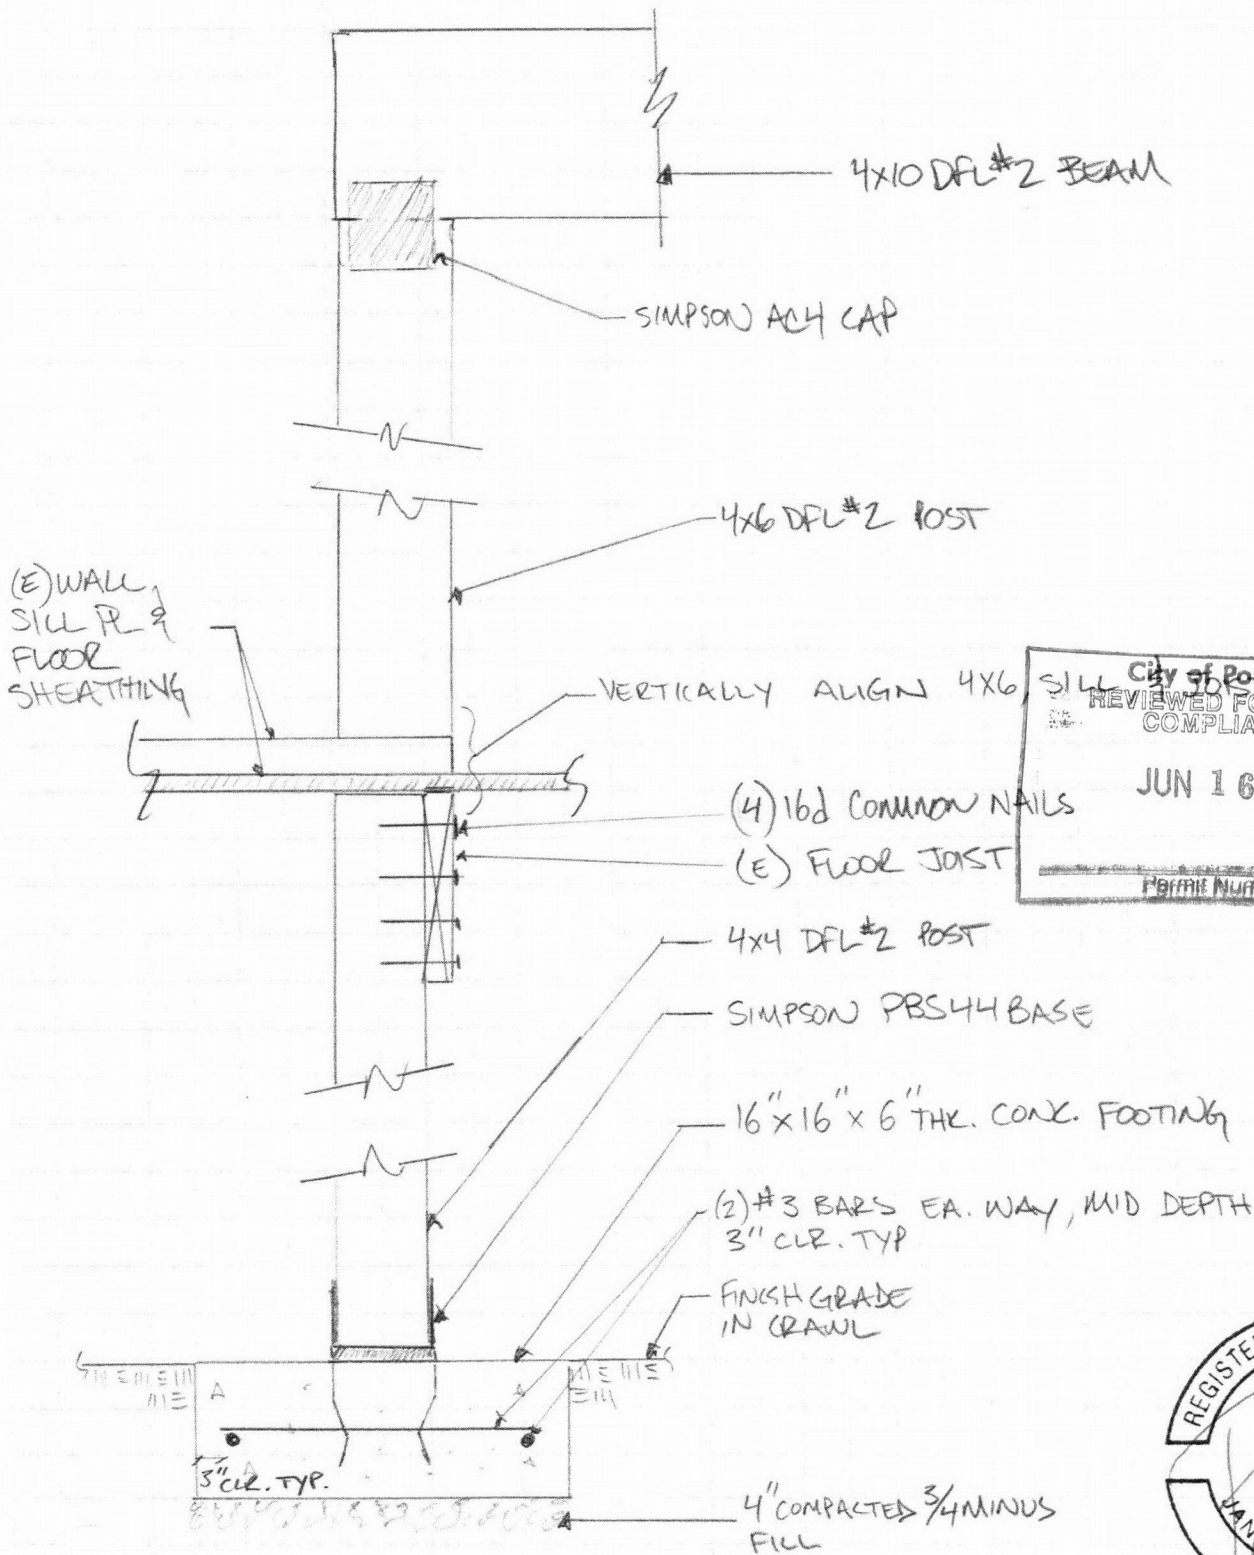 4X10 DFL #2 BEAM
SIMPSON AC4 CAP
4X6 DFL #2 POST
(E) WALL,
SILL PL &
FLOOR
SHEATHING
VERTICALLY ALIGN 4X6, SILL & JOIST
City of Po
REVIEWED FO
COMPLIA
JUN 16
Permit Num
(4) 16d COMMON NAILS
(E) FLOOR JOIST
4X4 DFL #2 POST
SIMPSON PBS44 BASE
16" X 16" X 6" THK. CONC. FOOTING
(2) #3 BARS EA. WAY, MID DEPTH
3" CLR. TYP
FINISH GRADE
IN CRAWL
3" CLR. TYP.
4" COMPACTED 3/4 MINUS
FILL
REGISTE
JAN